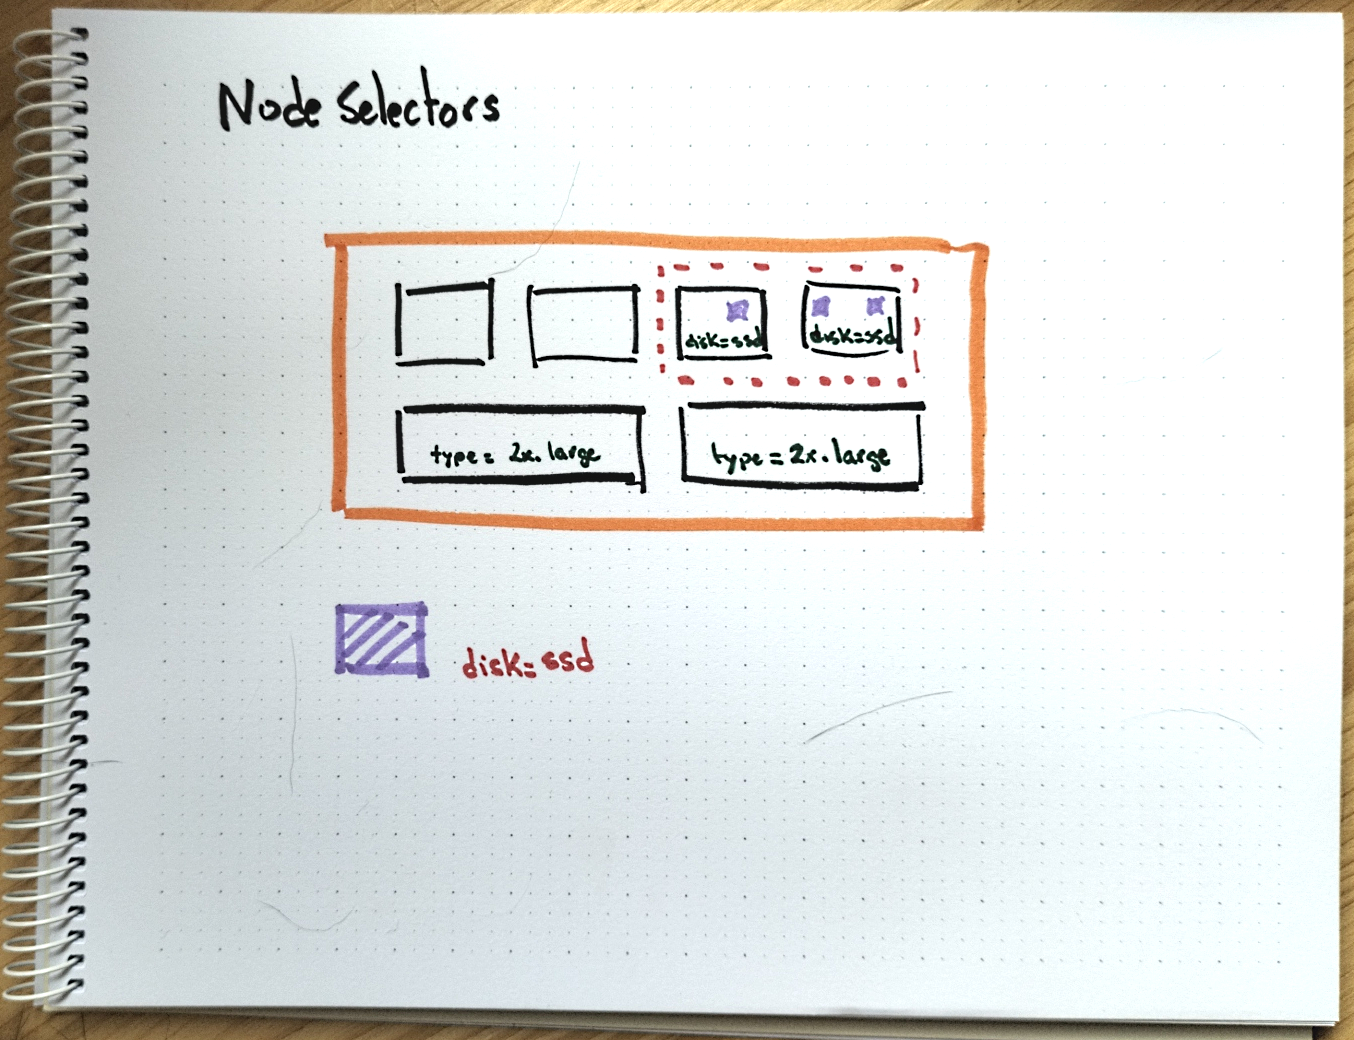 Node Selectors
disk=ssd
disk=ssd
type= 2x.large
type=2x.large
disk=ssd